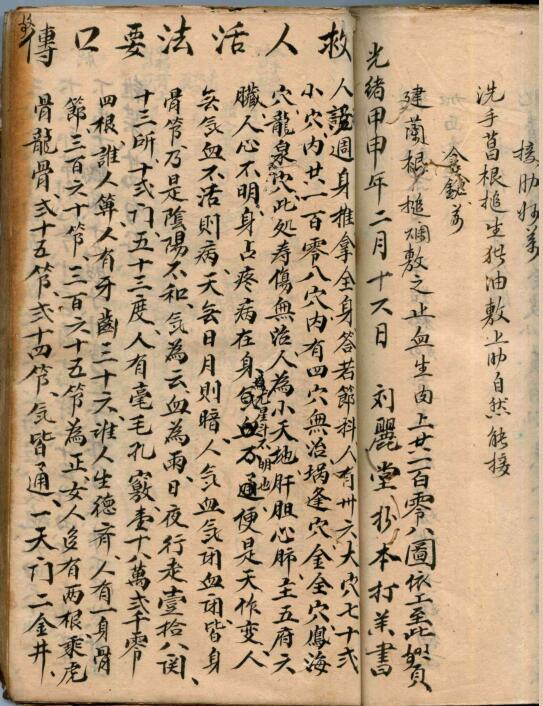 接肋好药
洗手菖根搥生猪油敷上肋自然能接
金鎗药
建蘭根搥爛敷之止血生肉上共一百零八圖依工至此
光緒甲申年二月十六日 刘麗堂抄本打药書
救人活法要口傳
人證週身推拿全身答若節科人有卅六大穴七十弍
小穴内共一百零八穴内有四穴無治埚逢穴金全穴鳳海
穴龍泉穴此処寿傷無治人為小天地肝胆心肺主五府六
臟人心不明身占疼病在身氣血不通便是天作变人
無氣血不活則病天無日月則暗人氣血氣闭血闭皆身
骨節乃是陰陽不和氣為云血為雨日夜行走壹拾八関
十三所十弍门五十三度人有毫毛孔竅壹十八萬弍千零
四根誰人筭人有牙齒三十六誰人生德齊人有一身骨
節三百六十節三百六十五節為正女人色有两根乘虎
骨龍骨弍十五節弍十四節氣皆通一天门二金井